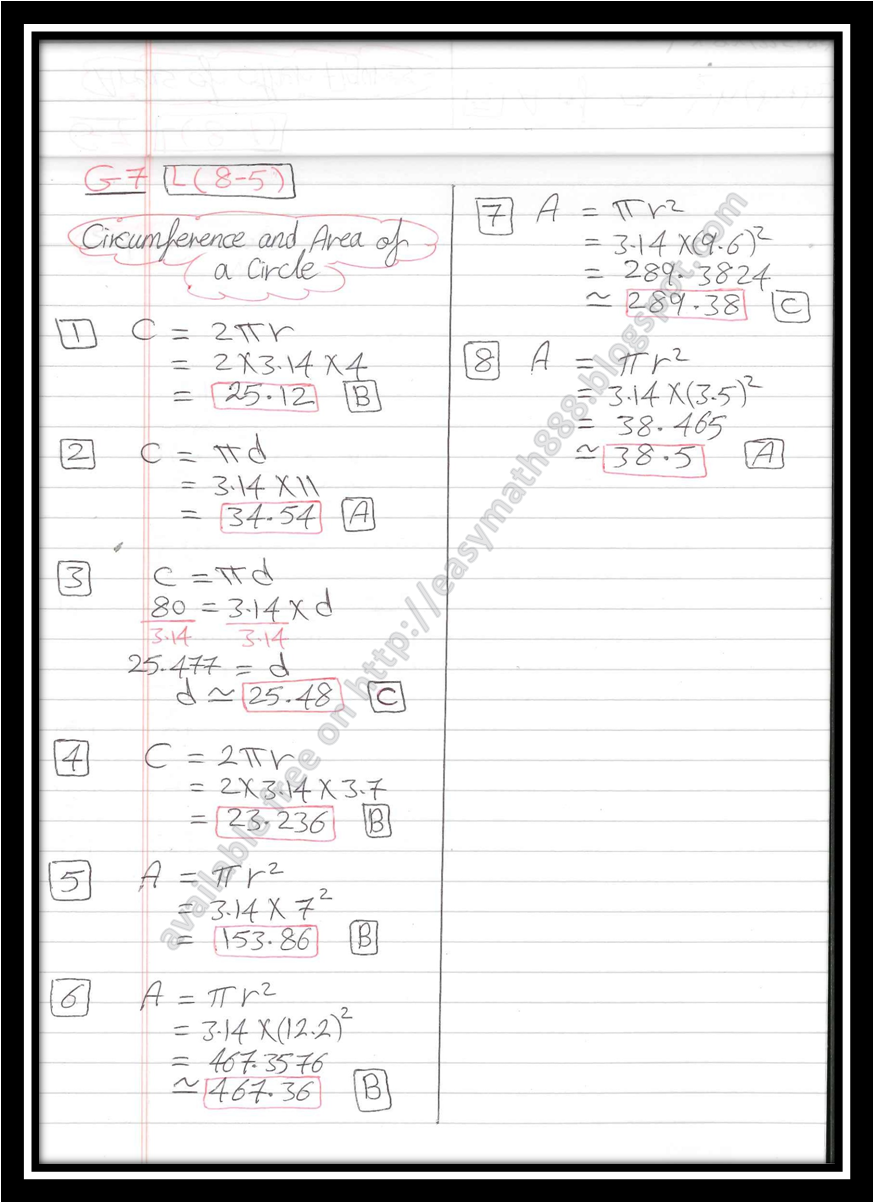 G-7 L(8-5)
Circumference and Area of
a Circle
1 C = 2πr
= 2×3.14×4
= 25.12 B
2 C = πd
= 3.14×11
= 34.54 A
3 C = πd
80 = 3.14×d
3.14 3.14
25.477 = d
d ≃ 25.48 C
4 C = 2πr
= 2×3.14×3.7
= 23.236 B
5 A = πr²
= 3.14×7²
= 153.86 B
6 A = πr²
= 3.14×(12.2)²
= 467.3576
≃ 467.36 B
7 A = πr²
= 3.14×(9.6)²
= 289.3824
≃ 289.38 C
8 A = πr²
= 3.14×(3.5)²
= 38.465
≃ 38.5 A
available free on http://easymath888.blogspot.com